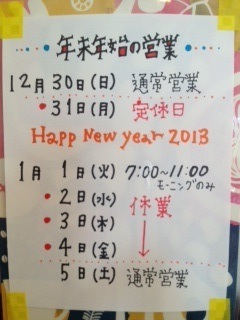 年末年始の営業
12月30日(日) 通常営業
31日(月) 定休日
Happ New year 2013
1月 1日(火) 7:00~11:00
モーニングのみ
2日(水) 休業
3日(木)
4日(金)
5日(土) 通常営業